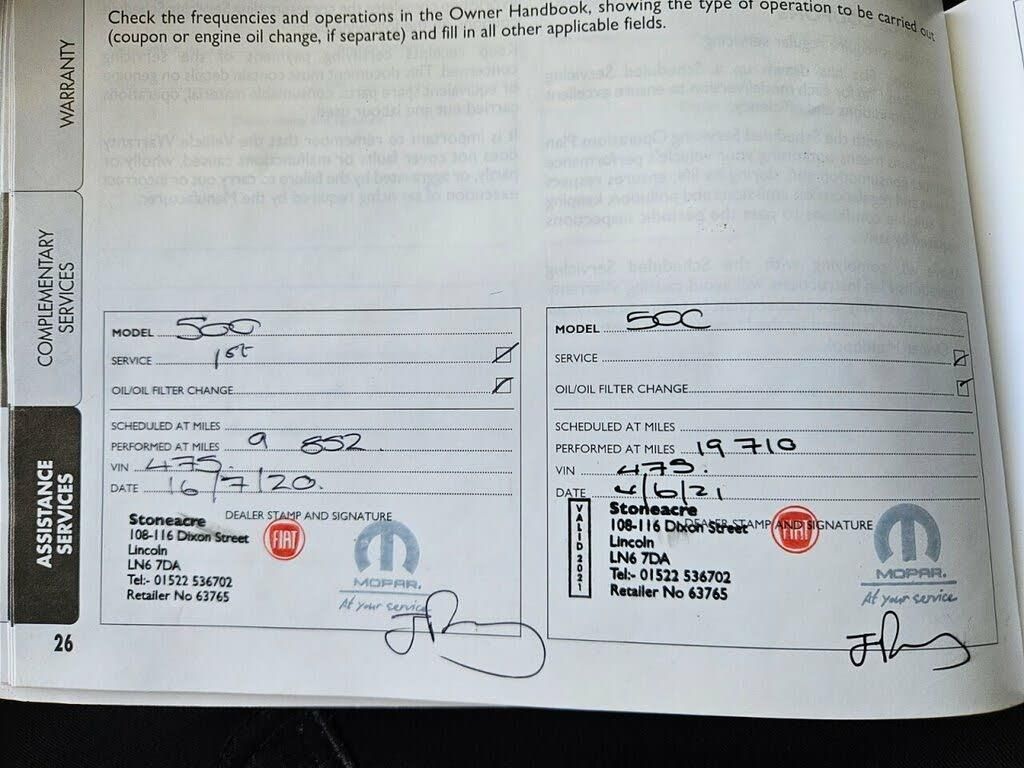 Check the frequencies and operations in the Owner Handbook, showing the type of operation to be carried out
(coupon or engine oil change, if separate) and fill in all other applicable fields.
WARRANTY
COMPLEMENTARY
SERVICES
ASSISTANCE
SERVICES
MODEL 500
SERVICE 1st
OIL/OIL FILTER CHANGE
SCHEDULED AT MILES
PERFORMED AT MILES 9 852
VIN 475.
DATE 16/7/20.
DEALER STAMP AND SIGNATURE
Stoneacre
108-116 Dixon Street
Lincoln
LN6 7DA
Tel:- 01522 536702
Retailer No 63765
FIAT
MOPAR.
At your service
MODEL 500
SERVICE
OIL/OIL FILTER CHANGE
SCHEDULED AT MILES
PERFORMED AT MILES 19 710
VIN 475.
DATE 4/6/21
DEALER STAMP AND SIGNATURE
VALID 2021
Stoneacre
108-116 Dixon Street
Lincoln
LN6 7DA
Tel:- 01522 536702
Retailer No 63765
FIAT
MOPAR.
At your service
26